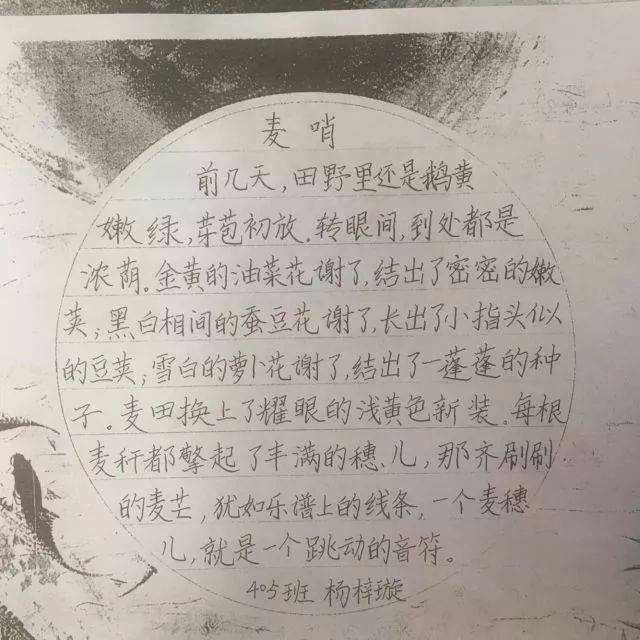 麦哨
前几天,田野里还是鹅黄
嫩绿,芽苞初放.转眼间,到处都是
浓荫。金黄的油菜花谢了,结出了密密的嫩
荚;黑白相间的蚕豆花谢了,长出了小指头似
的豆荚;雪白的萝卜花谢了,结出了一蓬蓬的种
子。麦田换上了耀眼的浅黄色新装。每根
麦秆都擎起了丰满的穗儿,那齐刷刷
的麦芒,犹如乐谱上的线条,一个麦穗
儿,就是一个跳动的音符。
405班 杨梓璇